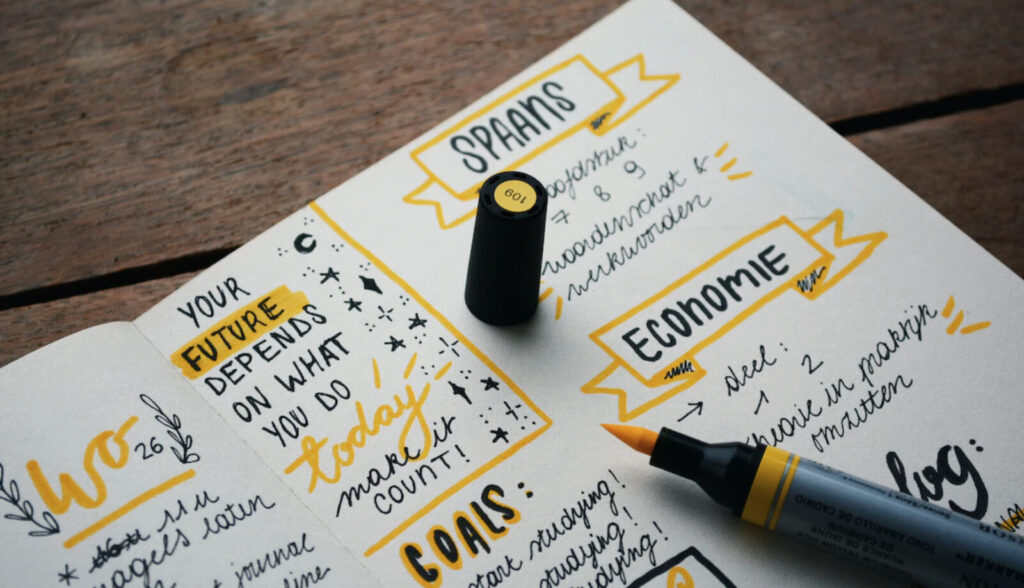 Wo
26
* 11 u
nagels laten
journal
YOUR
FUTURE
DEPENDS
ON WHAT
YOU DO
today
make it
COUNT!
GOALS:
start studying!
studying!
SPAANS
hoofdstuk:
7 8 9
woordenschat &
werkwoorden
109
ECONOMIE
→ deel:
1 2
in praktijk
omzetten
TONO AMARILLO DE CADMIO